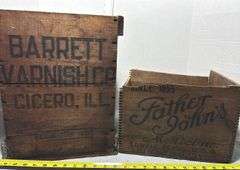 BARRETT
VARNISH CO
CICERO, ILL.
SINCE 1855
Father
John's
Medicine